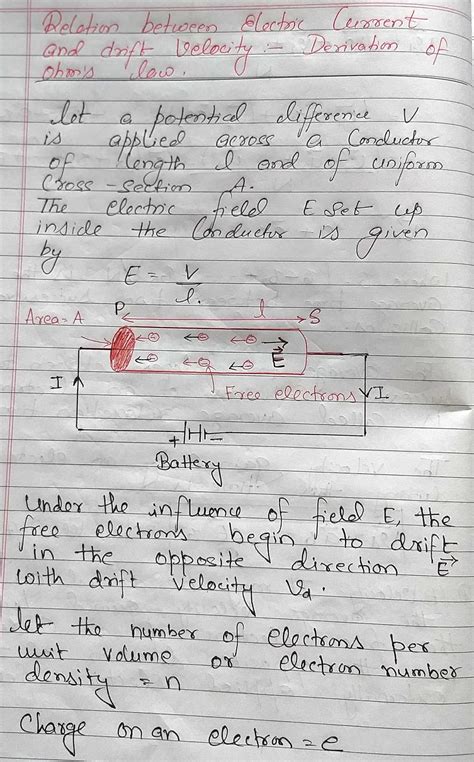 Relation between Electric Current
and drift Velocity :- Derivation of
ohm's law.
let a potential difference V
is applied across a Conductor
of length l and of uniform
Cross-section A.
The electric field E set up
inside the Conductor is given
by
E = V/l.
Area=A P l S
E
I Free electrons I
+ -
Battery
Under the influence of field E, the
free electrons begin to drift
in the opposite direction E
with drift velocity Vd.
let the number of electrons per
unit volume or electron number
density = n
Charge on an electron = e